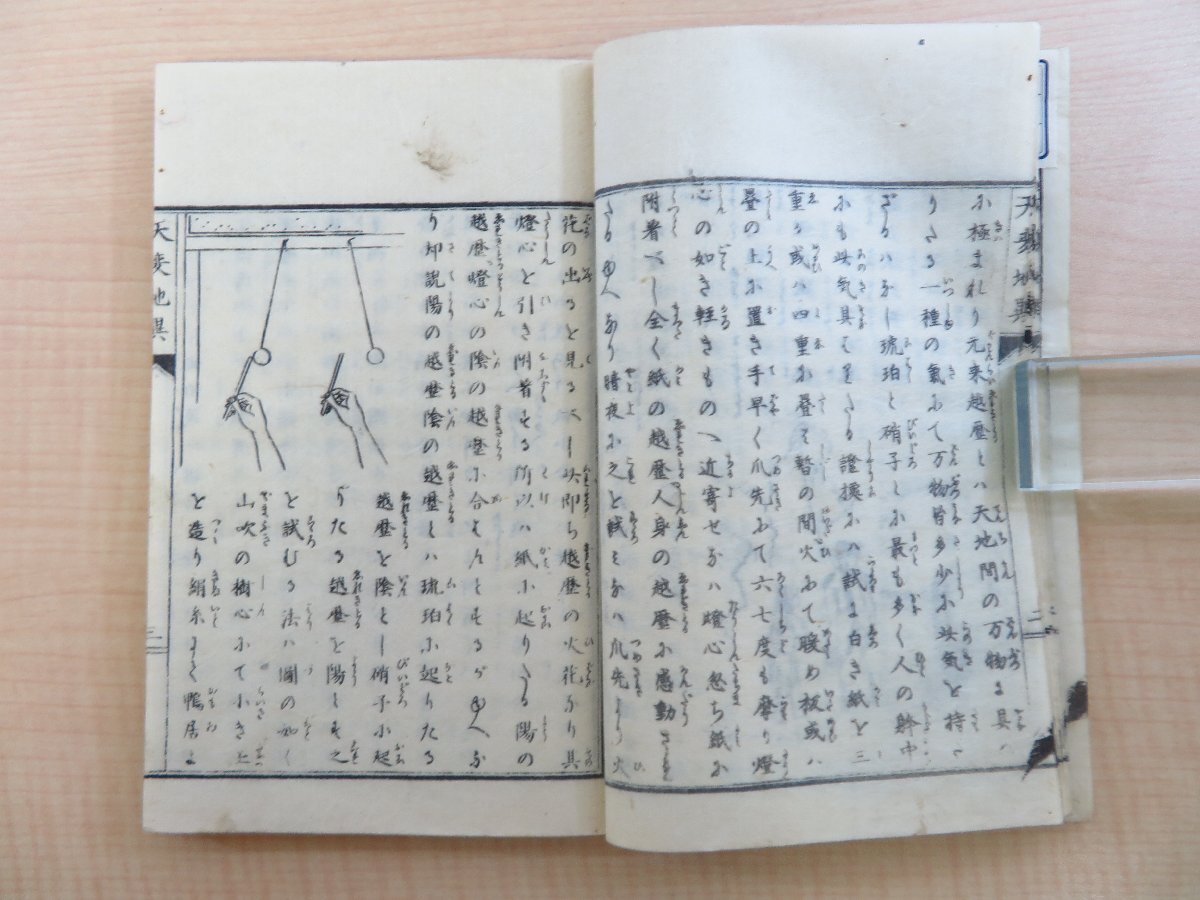 天変地異
二
に極まれり元来越歴とハ天地間の万物に具ハ
りたる一種の氣にて万物皆多少に此気を持た
ざるハなし琥珀と硝子とに最も多く人の躰中
にも此気具てをる證據にハ試に白き紙を三
重か或ハ四重に疊み暫の間火にて暖め板或ハ
疊の上に置き手早く爪先にて六七度も磨り燈
心の如き軽きものへ近寄せなハ燈心忽ち紙に
附着べし全く紙の越歴人身の越歴に感動さるゝ
ゆへなり暗夜に之を試みなハ爪先より火
花の出るを見るべし此即ち越歴の火花なり其
燈心を引き附着する所以ハ紙に起りたる陽の
越歴燈心の陰の越歴に合はんとするがゆへな
り却説陽の越歴陰の越歴とハ琥珀に起りたる
越歴を陰とし硝子に起
りたる越歴を陽とす之
を試むる法ハ圖の如く
山吹の樹心にて小き丸
を造り絹糸にて鴨居よ
天変地異
三